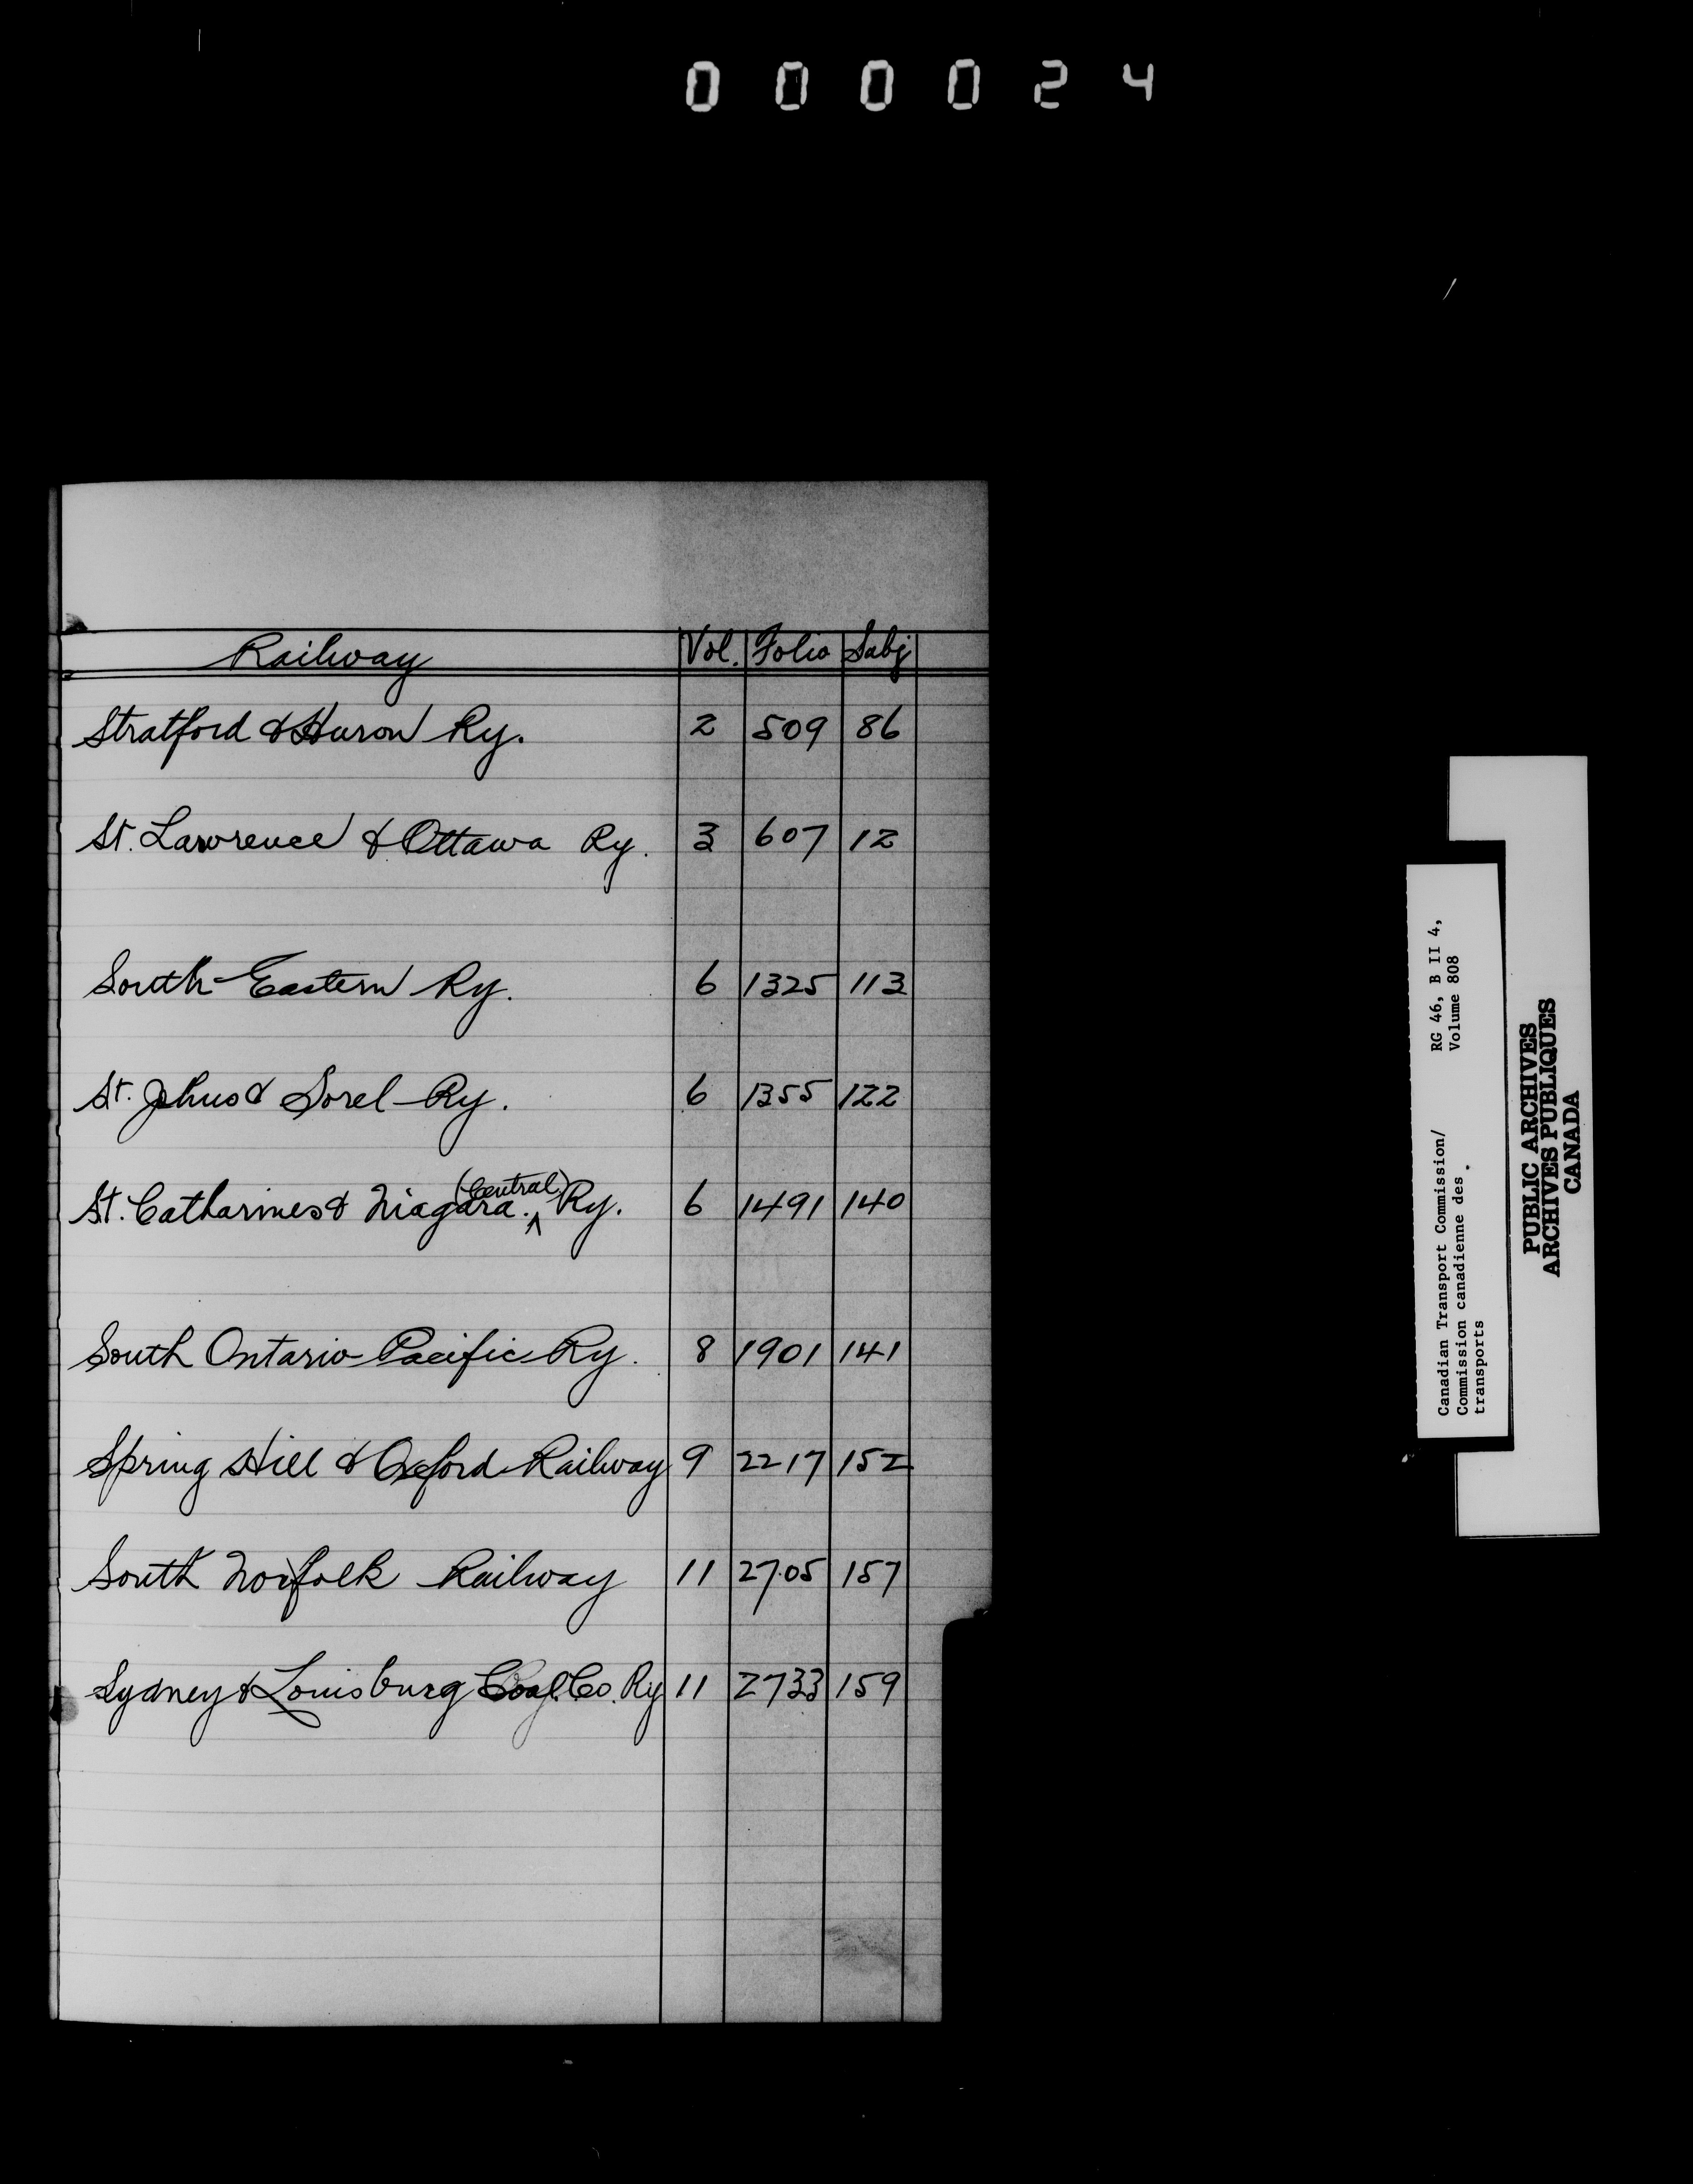 000024
Railway Vol. Folio Subj
Stratford & Huron Ry. 2 509 86
St. Lawrence & Ottawa Ry. 3 607 12
South-Eastern Ry. 6 1325 113
St. Johns & Sorel Ry. 6 1355 122
(Central)
St. Catharines & Niagara. ^ Ry. 6 1491 140
South Ontario Pacific Ry. 8 1901 141
Spring Hill & Oxford Railway 9 2217 152
South Norfolk Railway 11 2705 157
Sydney & Louisburg Coal Co. Ry 11 2733 159
Canadian Transport Commission/ RG 46, B II 4,
Commission canadienne des . Volume 808
transports
PUBLIC ARCHIVES
ARCHIVES PUBLIQUES
CANADA